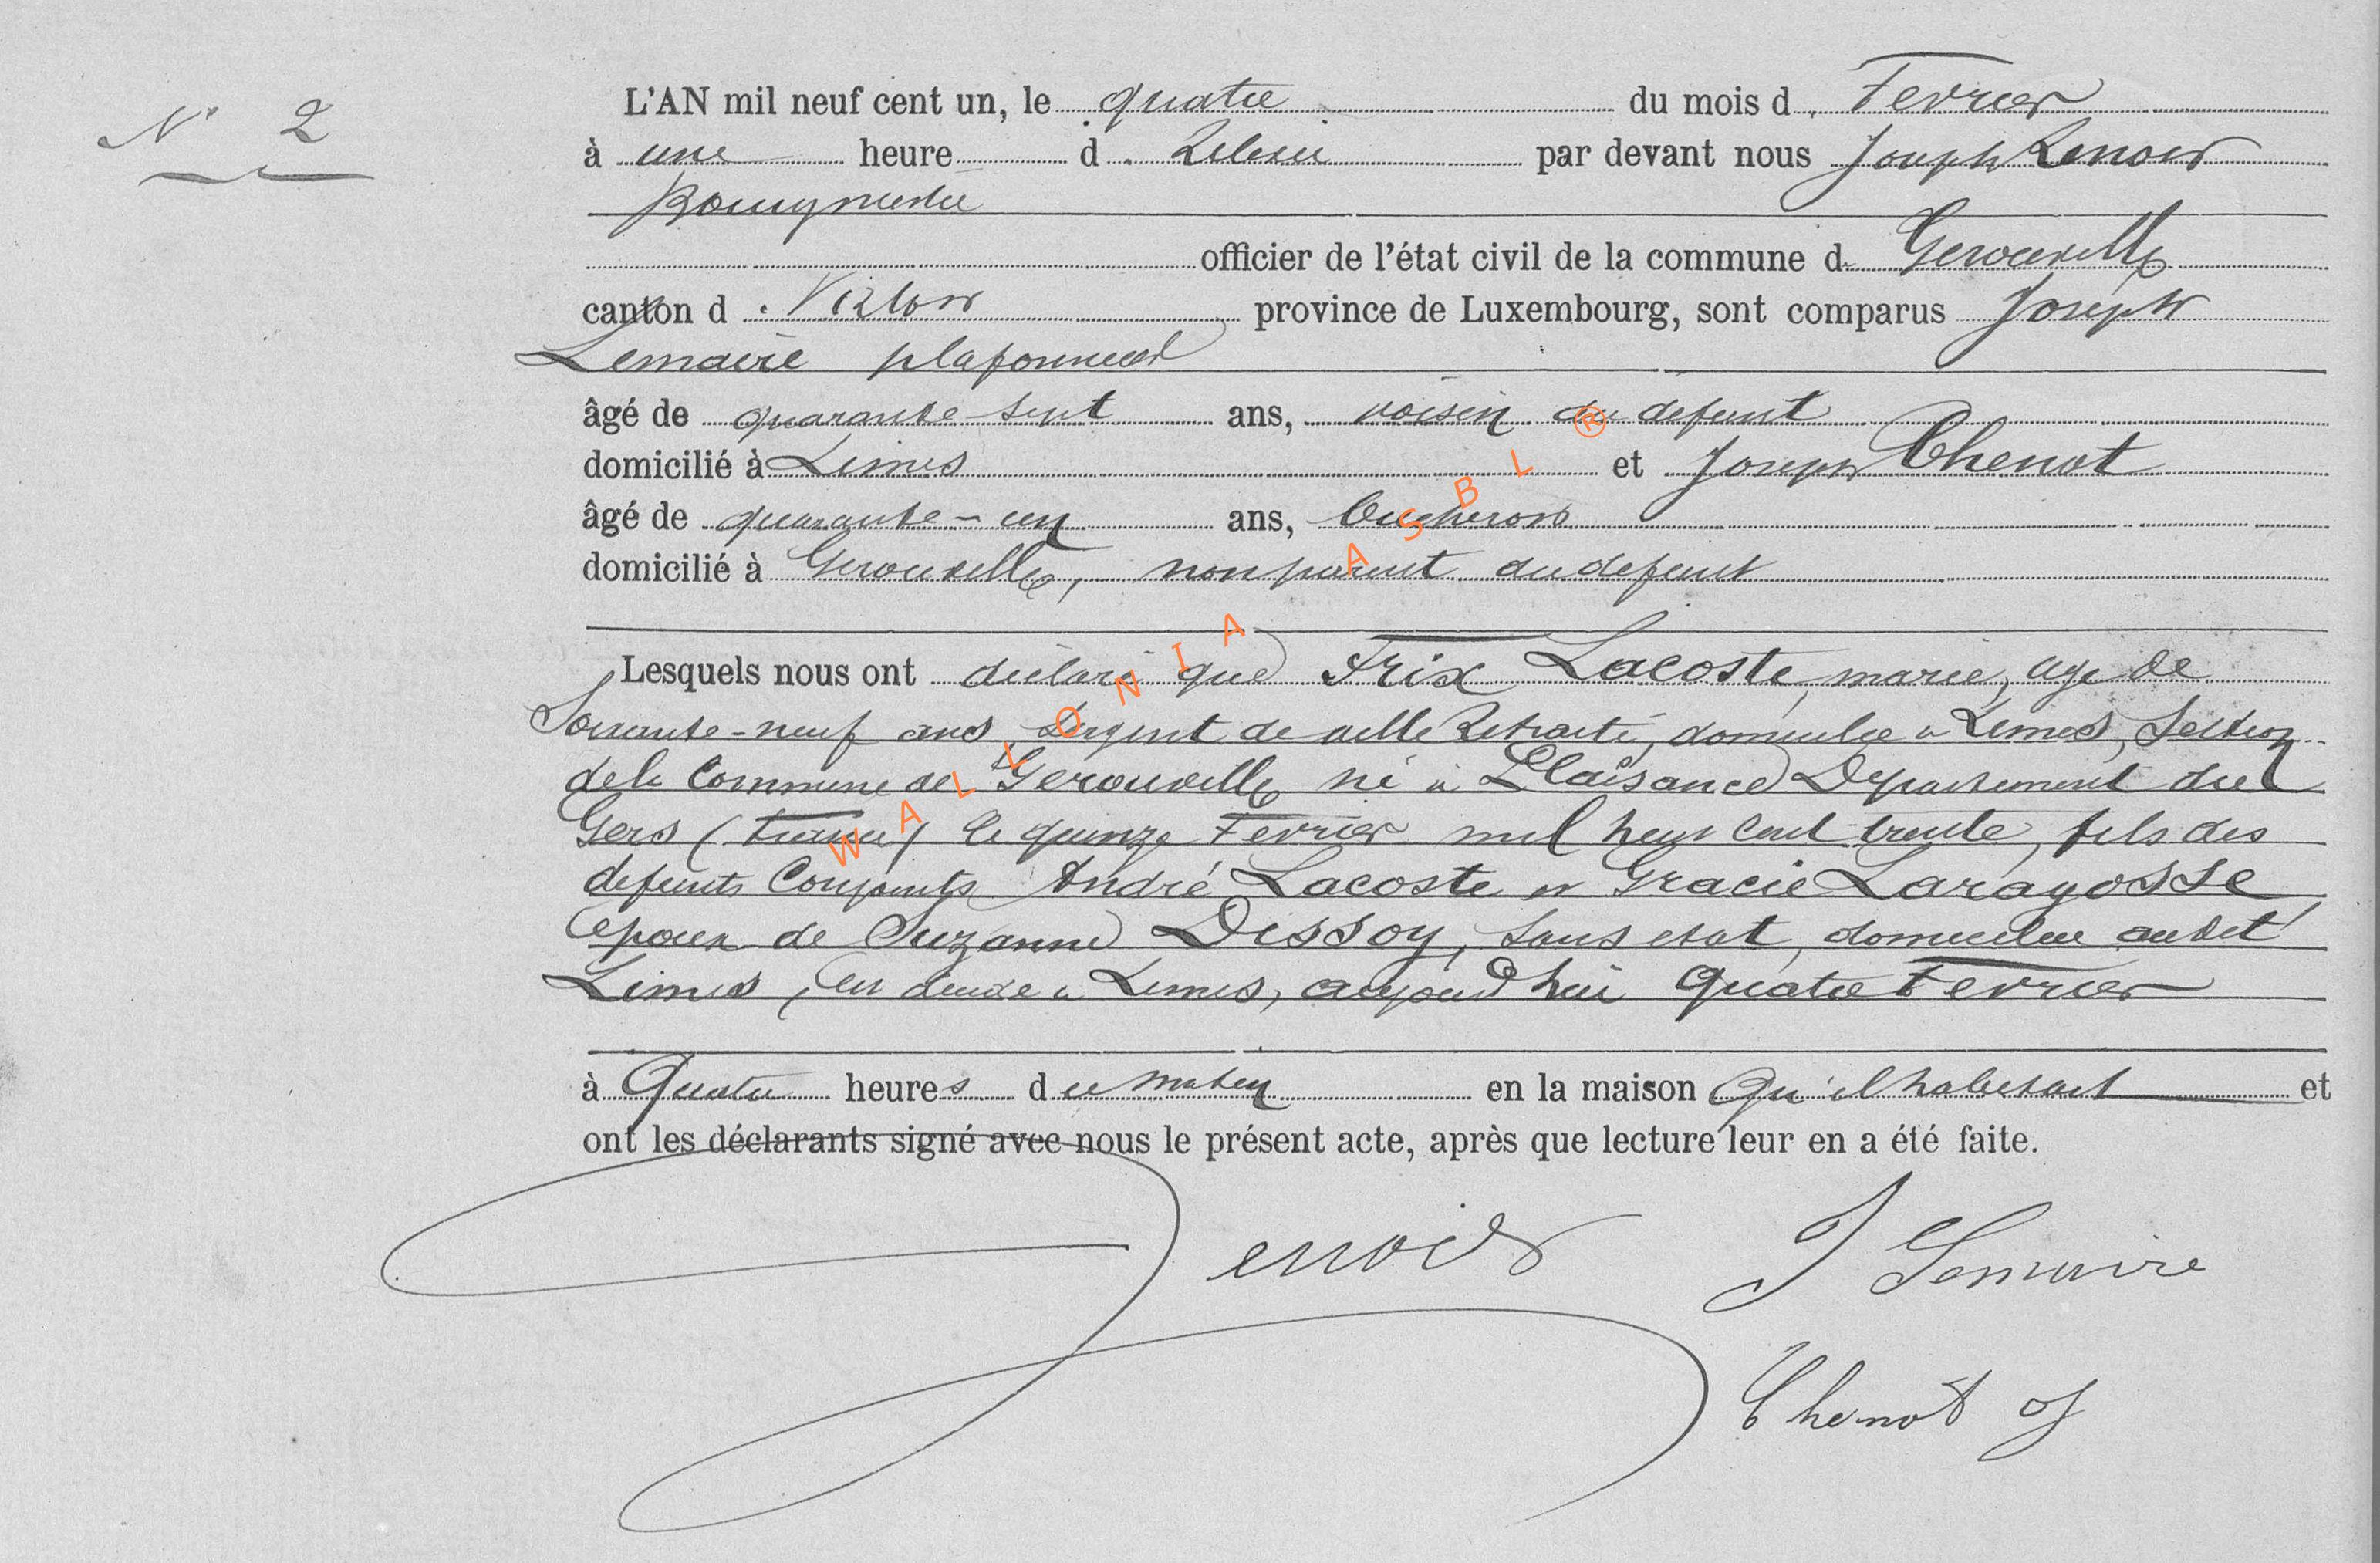 N° 2
L'AN mil neuf cent un, le quatre du mois d. Fevrier
à une heure d. Relevée par devant nous Joseph Lenoir
Bourgmestre
officier de l'état civil de la commune d. Gerouville
canton d. Virton province de Luxembourg, sont comparus Joseph
Lemaire plafonneur
âgé de quarante-sept ans, voisin du défunt
domicilié à Limes et Joseph Thenot
âgé de quarante-un ans, bucheron
domicilié à Gerouville, non parent du defunt
Lesquels nous ont déclaré que Frix Lacoste, marié, agé de
Soixante-neuf ans, Sergent de ville Retraité, domicilié à Limes, Section
de la Commune de Gerouville né à Plaisance Département du
Gers (France) le quinze Fevrier mil huit cent trente, fils des
defunts Conjoints André Lacoste et Gracie Laragosse
epoux de Suzanne Dessoy, sans etat, domiciliée audit
Limes, est décédé à Limes, aujourd'hui Quatre Fevrier
à Quatre heures du matin en la maison Qu'il habitait et
ont les déclarants signé avec nous le présent acte, après que lecture leur en a été faite.
Lenoir J Lemaire
Thenot J
WALLONIA ASBL ®